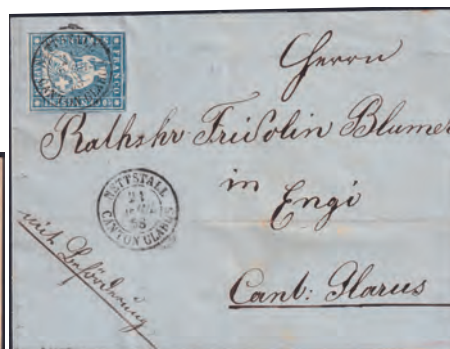 FRANCO
Herrn
Rathshr Fridolin Blumer
in
Engi
Cant: Glarus
NETTSTALL
21
58
CANTON GLARUS
mit Beförderung